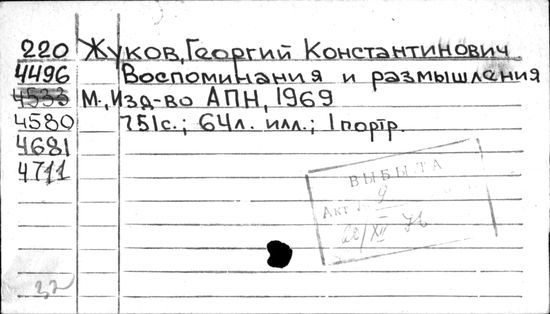 220 Жуков, Георгий Константинович
4496 Воспоминания и размышления
4533 М., Изд-во АПН, 1969
4580 751с.; 64л. илл.; 1 портр.
4681
4711
ВЫБЫЛА
Акт 9
32